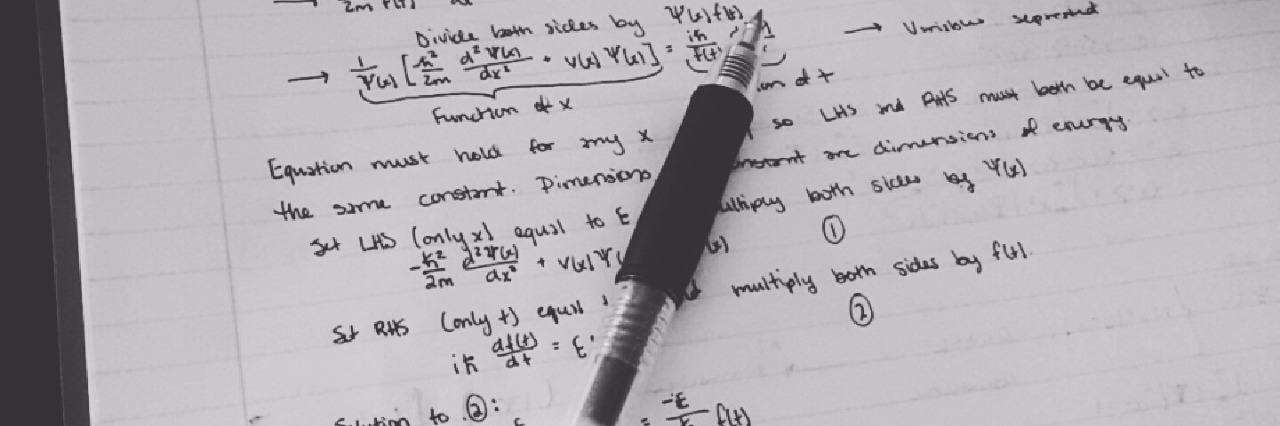 2m
Divide both sides by Ψ(x) f(t)
→ 1/Ψ(x) [ ħ²/2m d²Ψ(x)/dx² + V(x) Ψ(x) ] = iħ/f(t) → Variables separated
Function of x of t
Equation must hold for any x so LHS and RHS must both be equal to
the same constant. Dimensions constant are dimensions of energy.
Set LHS (only x) equal to E multiply both sides by Ψ(x)
-ħ²/2m d²Ψ(x)/dx² + V(x) Ψ (x) ①
Set RHS (only t) equal multiply both sides by f(t).
iħ df(t)/dt = E ②
Solution to ②: = -iE/ħ f(t)